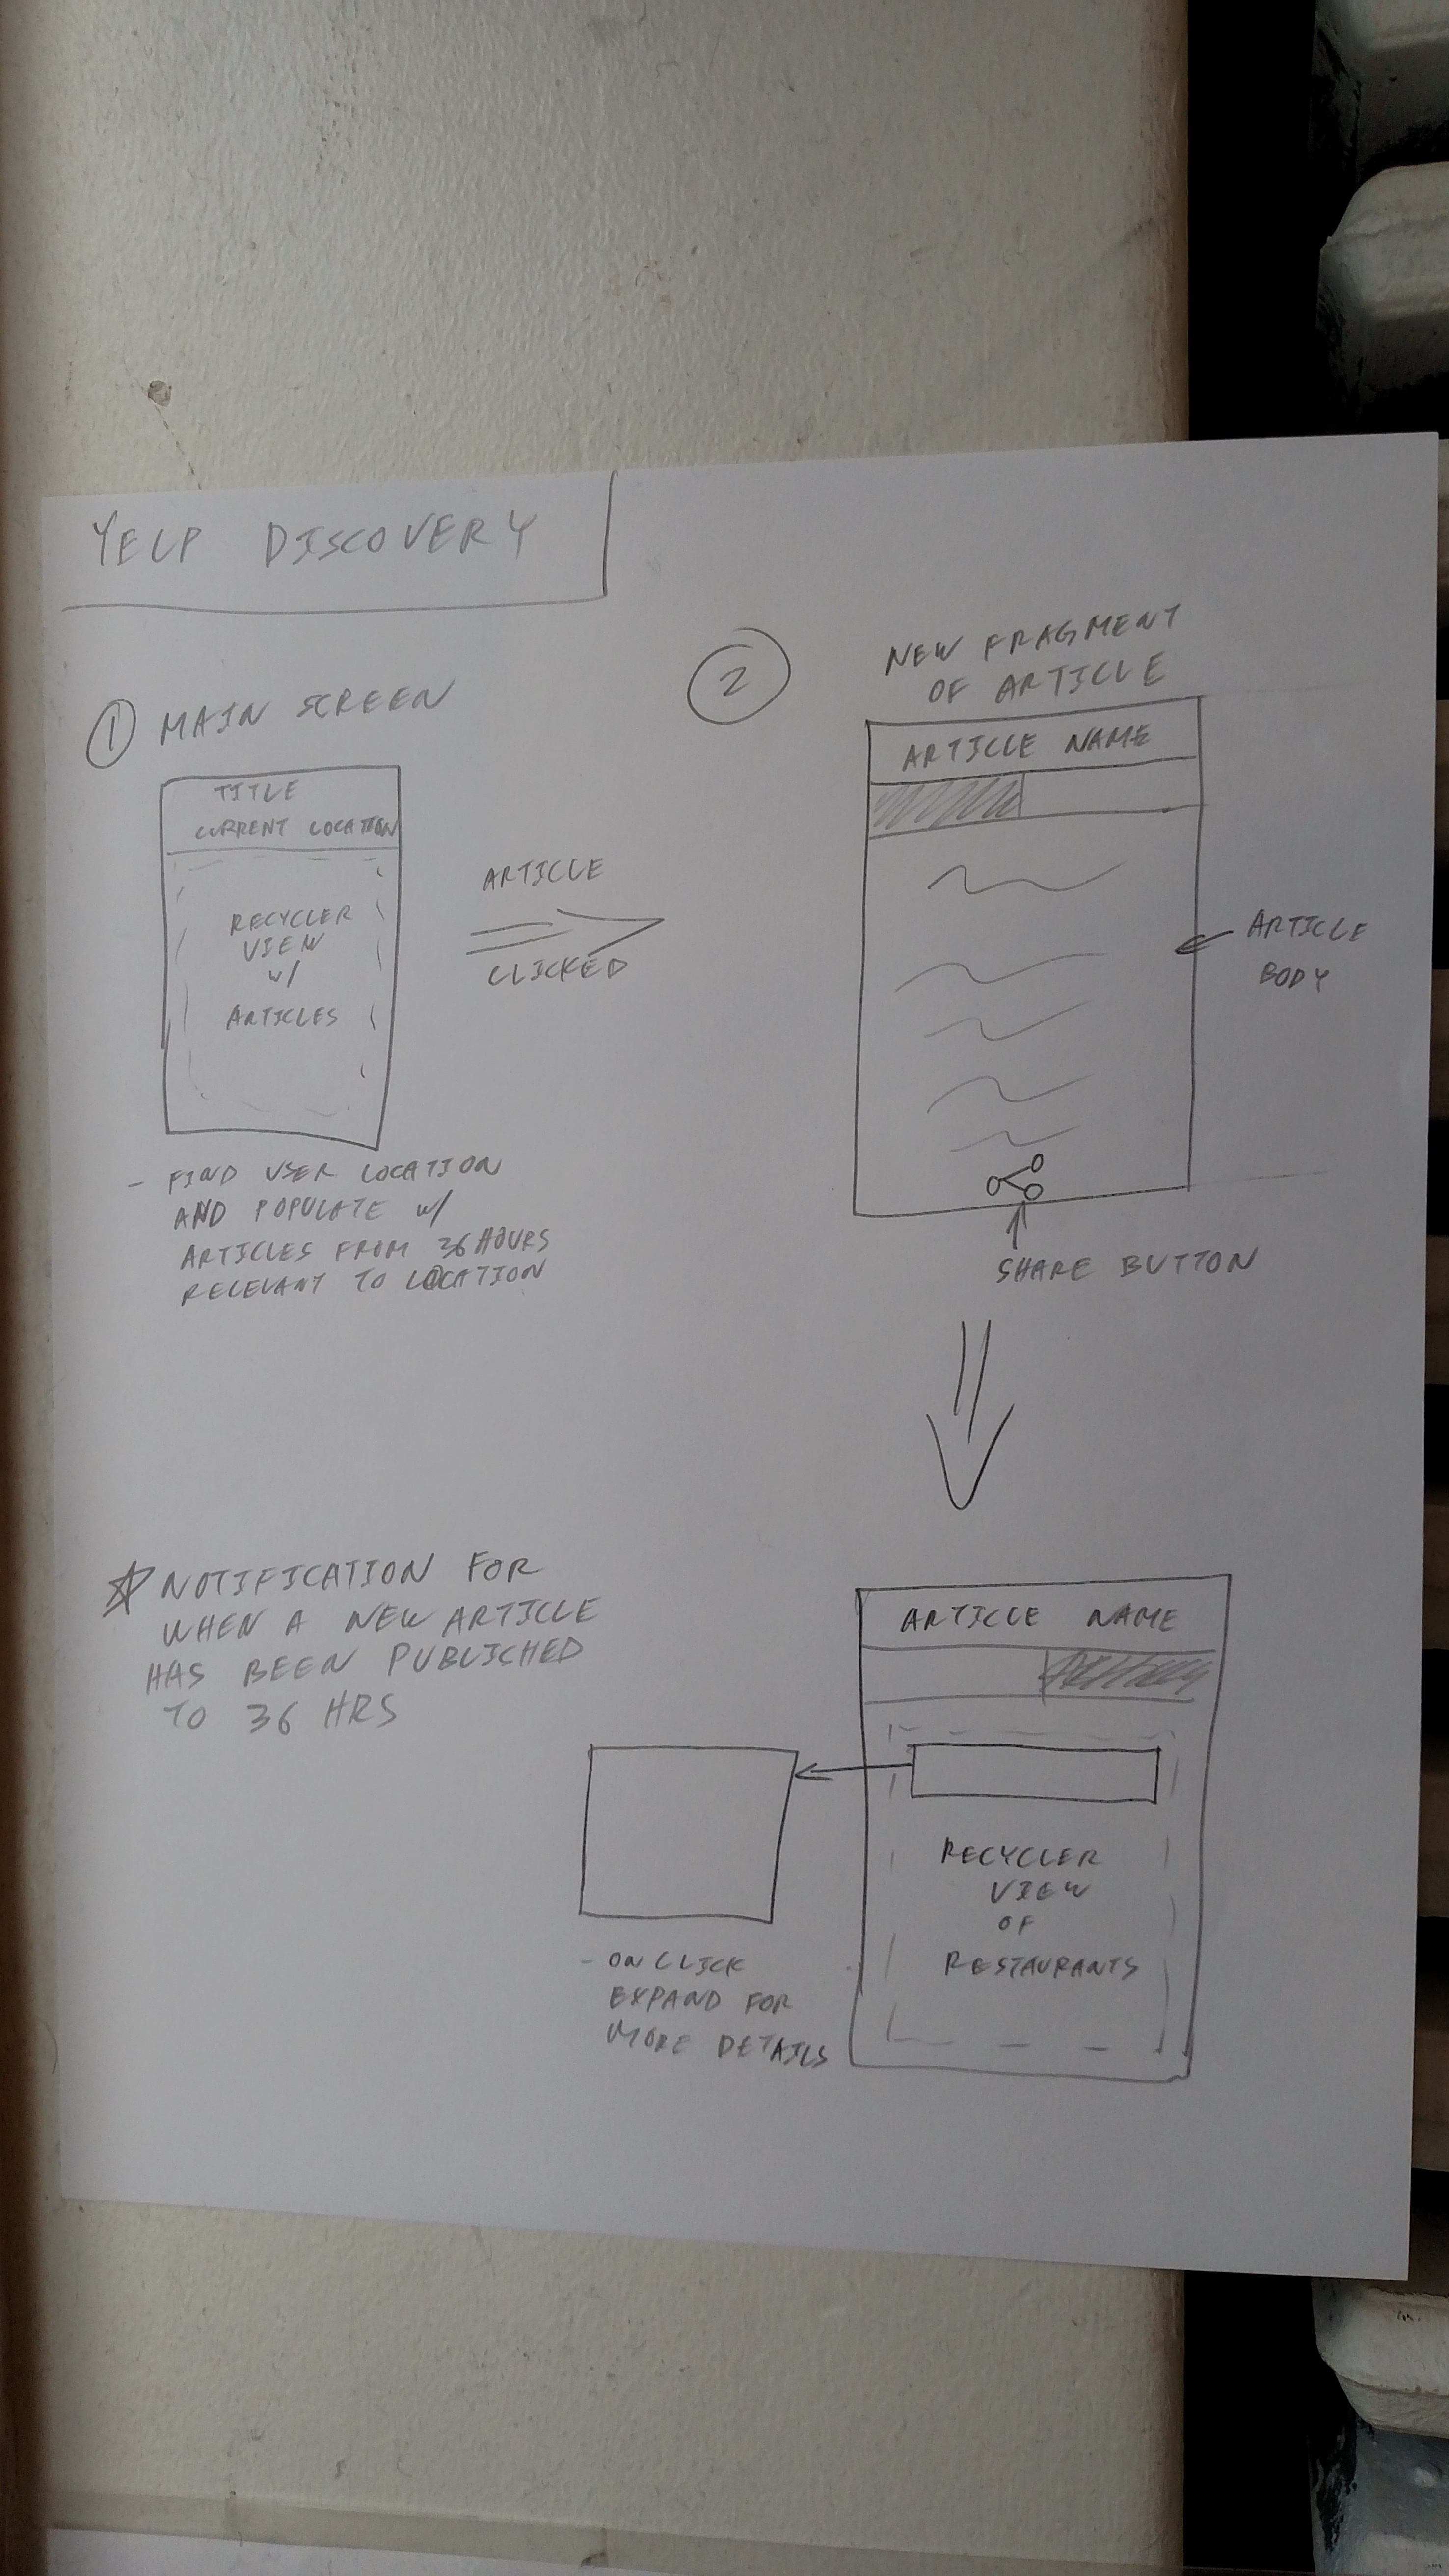 YELP DISCOVERY
① MAIN SCREEN
TITLE
CURRENT LOCATION
RECYCLER
VIEW
w/
ARTICLES
- FIND USER LOCATION
AND POPULATE w/
ARTICLES FROM 36 HOURS
RELEVANT TO LOCATION
ARTICLE
CLICKED
②
NEW FRAGMENT
OF ARTICLE
ARTICLE NAME
ARTICLE
BODY
SHARE BUTTON
☆ NOTIFICATION FOR
WHEN A NEW ARTICLE
HAS BEEN PUBLISHED
TO 36 HRS
ARTICLE NAME
RECYCLER
VIEW
OF
RESTAURANTS
- ON CLICK
EXPAND FOR
MORE DETAILS